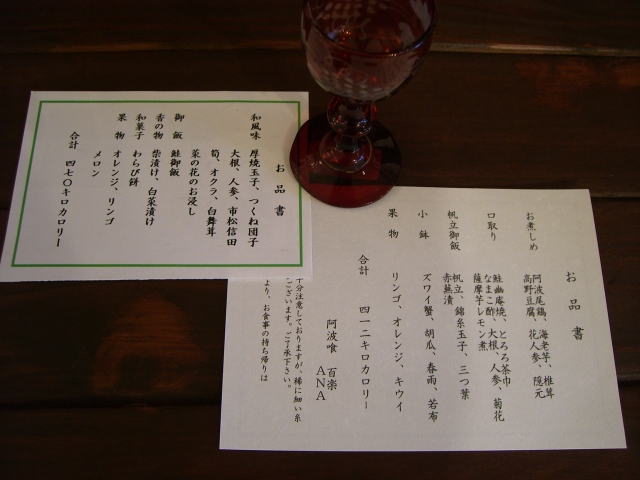 お品書
和風味 厚焼玉子、つくね団子
大根、人参、市松信田
筍、オクラ、白舞茸
菜の花のお浸し
御飯 鮭御飯
香の物 柴漬け、白菜漬け
和菓子 わらび餅
果物 オレンジ、リンゴ
メロン
合計 四七〇キロカロリー
お品書
お煮しめ 阿波尾鶏、海老芋、椎茸
高野豆腐、花人参、隠元
口取り 鮭幽庵焼、とろろ茶巾
なまこ酢、大根、人参、菊花
薩摩芋レモン煮
帆立御飯 帆立、錦糸玉子、三つ葉
赤蕪漬
小鉢 ズワイ蟹、胡瓜、春雨、若布
果物 リンゴ、オレンジ、キウイ
合計 四一二キロカロリー
阿波喰 百楽
ANA
十分注意しておりますが、稀に細い糸
ございます。ご了承下さい。
より、お食事の持ち帰りは